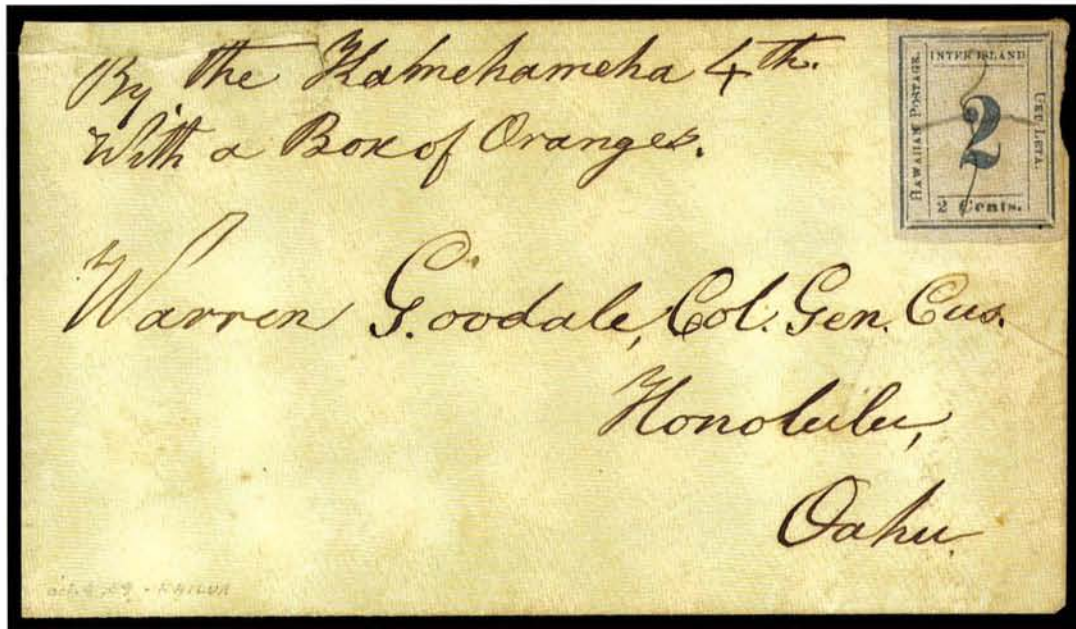 By the Kalmehameha 4th.
With a Box of Oranges.
INTER ISLAND
HAWAIIAN POSTAGE.
UKU LETA.
2
2 Cents.
Warren Goodale, Col. Gen. Cus.
Honolulu,
Oahu.
KAILUA